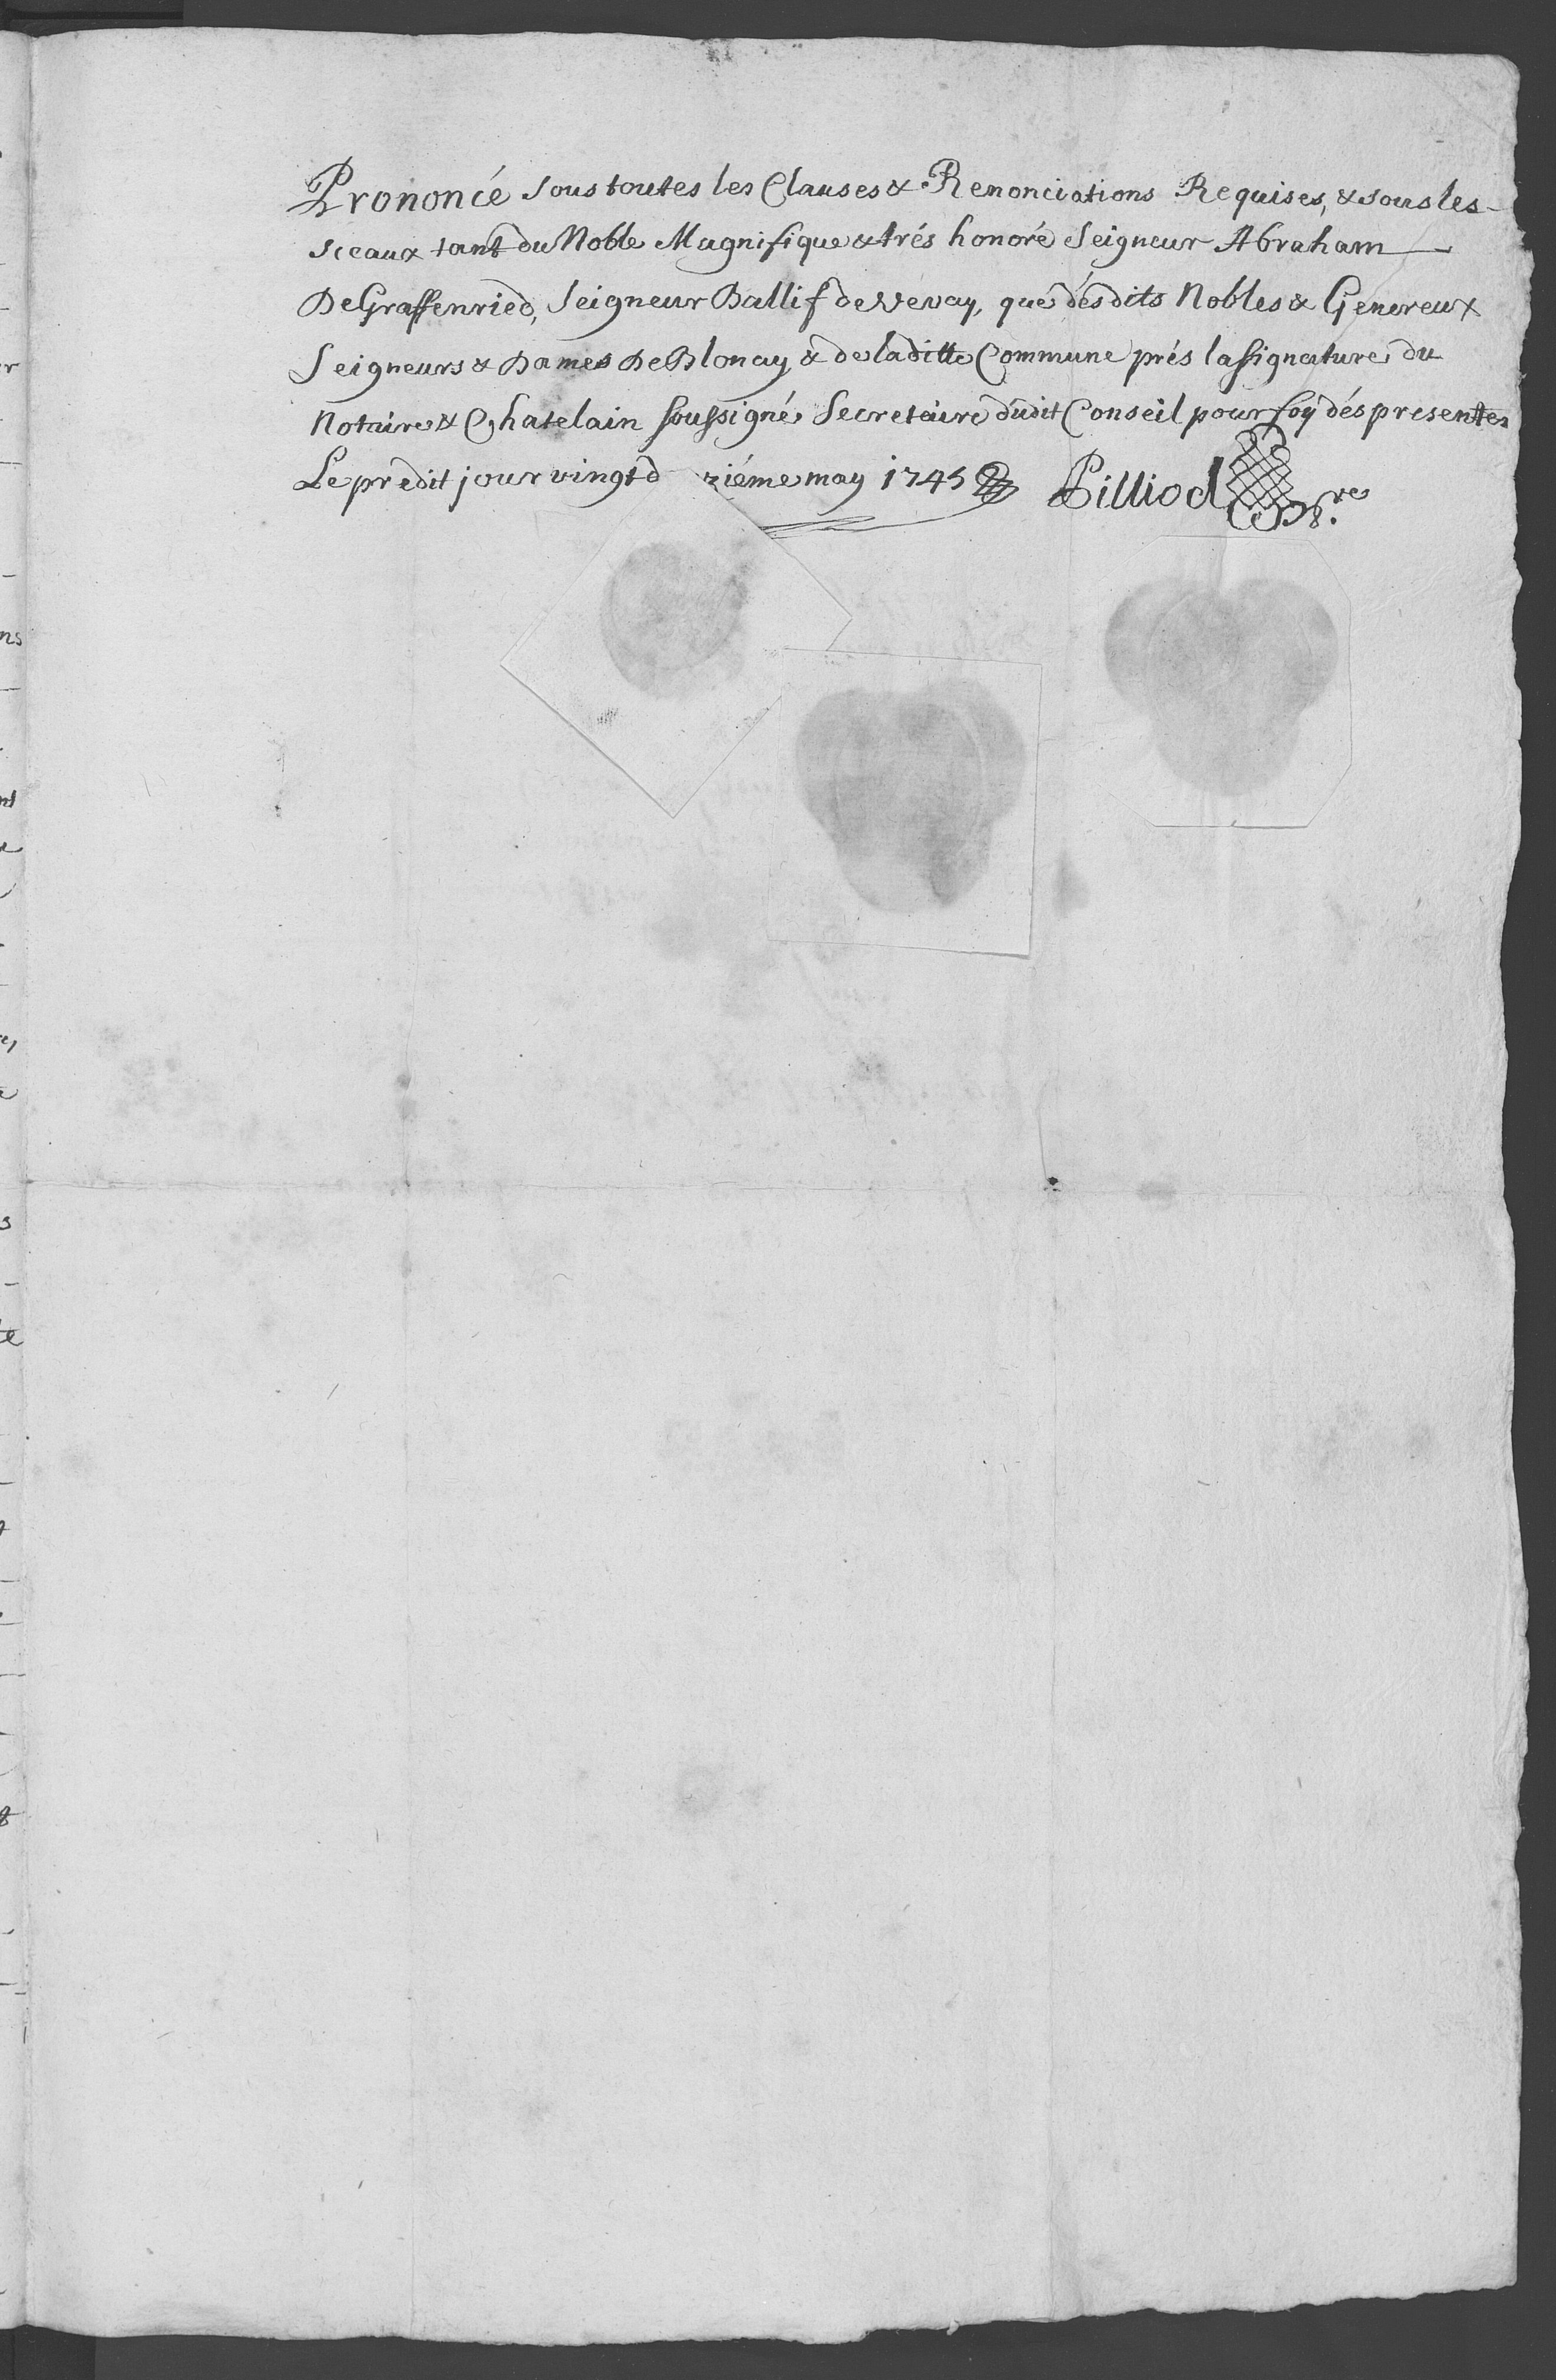 Prononcé sous toutes les Clauses & Renonciations Requises, & sous les
sceaux tant du Noble Magnifique & trés honoré Seigneur Abraham
De Graffenried, Seigneur Ballif de Vevay, que désdits Nobles & Genereux
Seigneurs & Dames De Blonay & de laditte Commune prés la signature du
Notaire & Chatelain soussigné Secretaire dudit Conseil pour foy dés presentes
Le predit jour vingt d ziéme may 1745 Pilliod